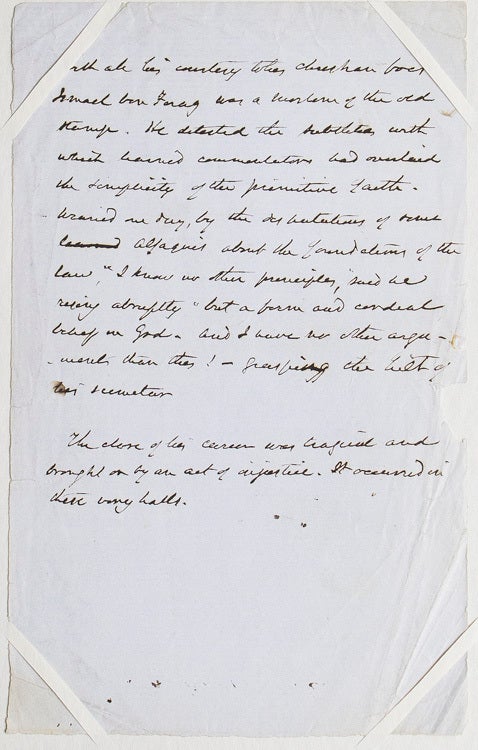 With all his courtesy to his christian foes
Ismael ben Farag was a moslem of the old
stamp. He detested the subtleties with
which learned commentators had overlaid
the simplicity of the primitive faith.
Wearied one day, by the disputations of some
learned Alfaquis about the foundations of the
law, "I know no other principles," said he
rising abruptly "but a firm and cordial
belief in God. and I have no other argu-
-ments than this! - grasping the hilt of
his scimetar
The close of his career was tragical and
brought on by an act of injustice. It occurred in
these very halls.